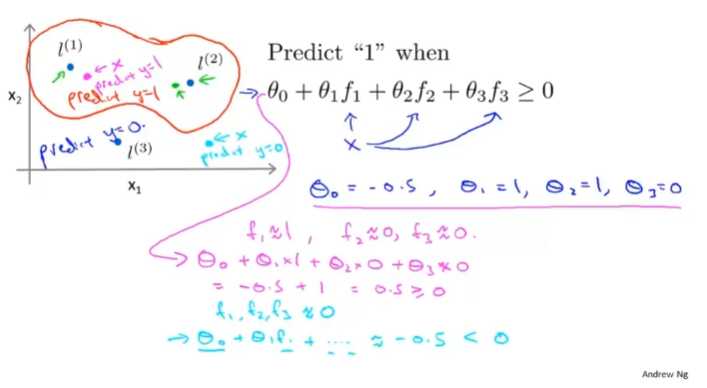 l^(1)
x
predict y=1
l^(2)
predict y=1
x₂
predict y=0.
l^(3)
x
predict y=0
x₁
Predict “1” when
θ₀ + θ₁f₁ + θ₂f₂ + θ₃f₃ ≥ 0
x
θ₀ = -0.5 , θ₁ = 1, θ₂ = 1, θ₃ = 0
f₁ ≈ 1 , f₂ ≈ 0, f₃ ≈ 0.
θ₀ + θ₁ × 1 + θ₂ × 0 + θ₃ × 0
= -0.5 + 1 = 0.5 ≥ 0
f₁, f₂, f₃ ≈ 0
θ₀ + θ₁f₁ + .... ≈ -0.5 < 0
Andrew Ng